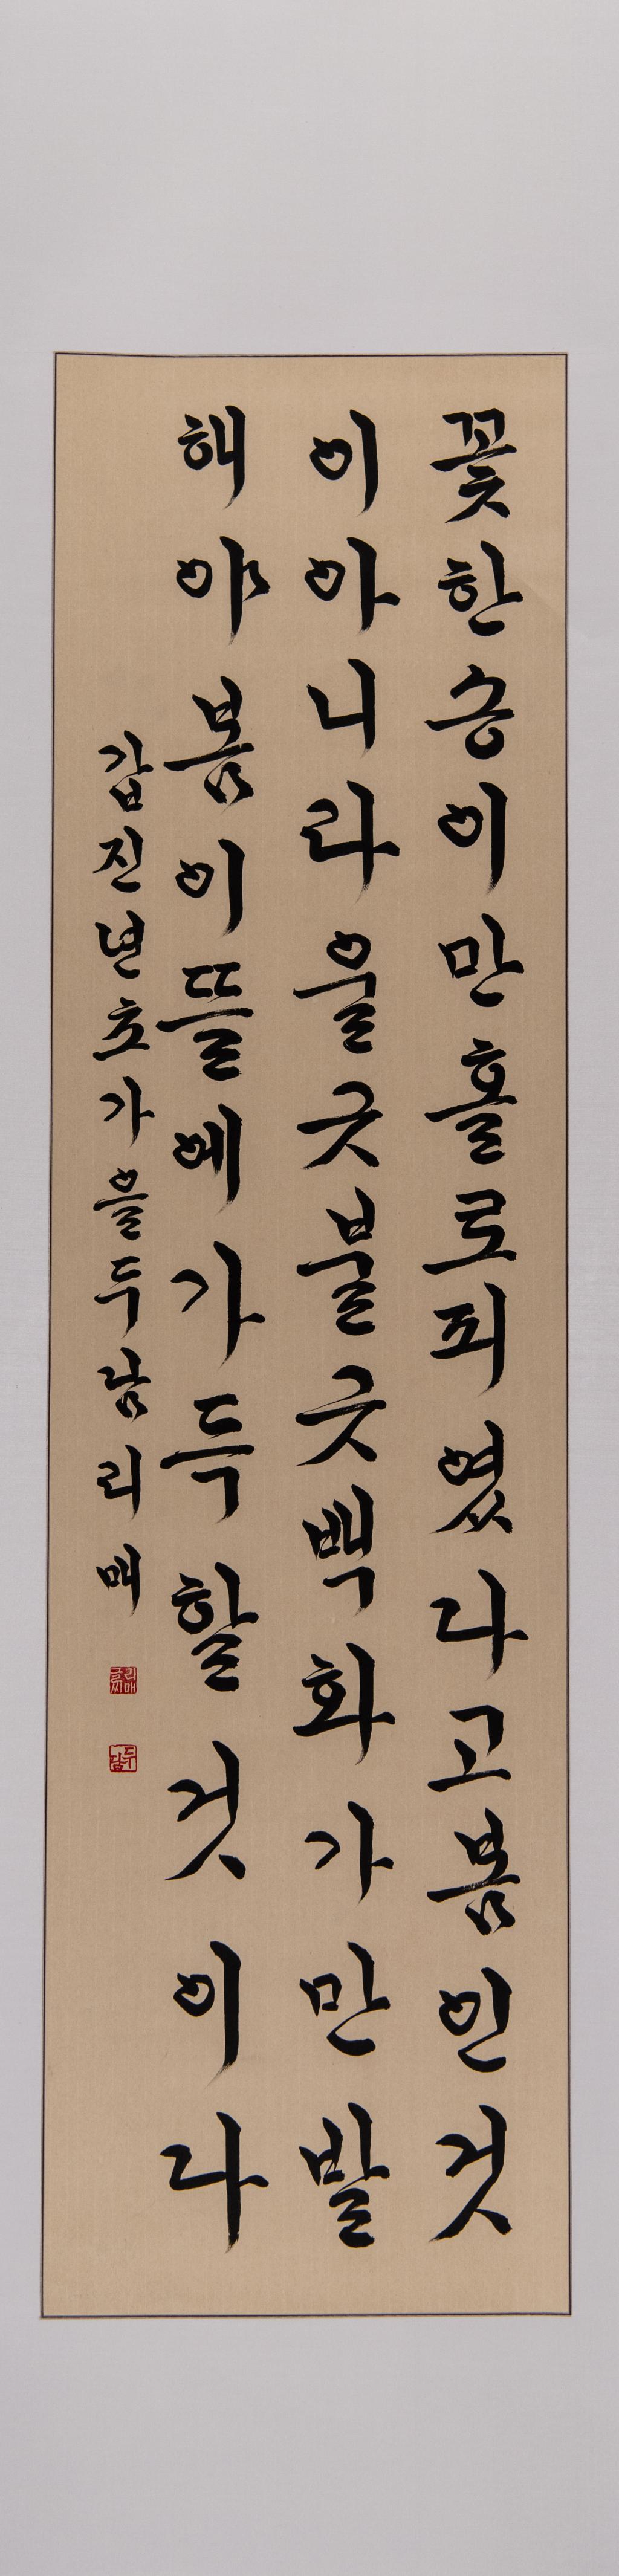 꽃한송이만홀로피였다고봄인것
이아니라울긋불긋백화가만발
해야봄이뜰에가득할것이다
갑진년초가을두남리매